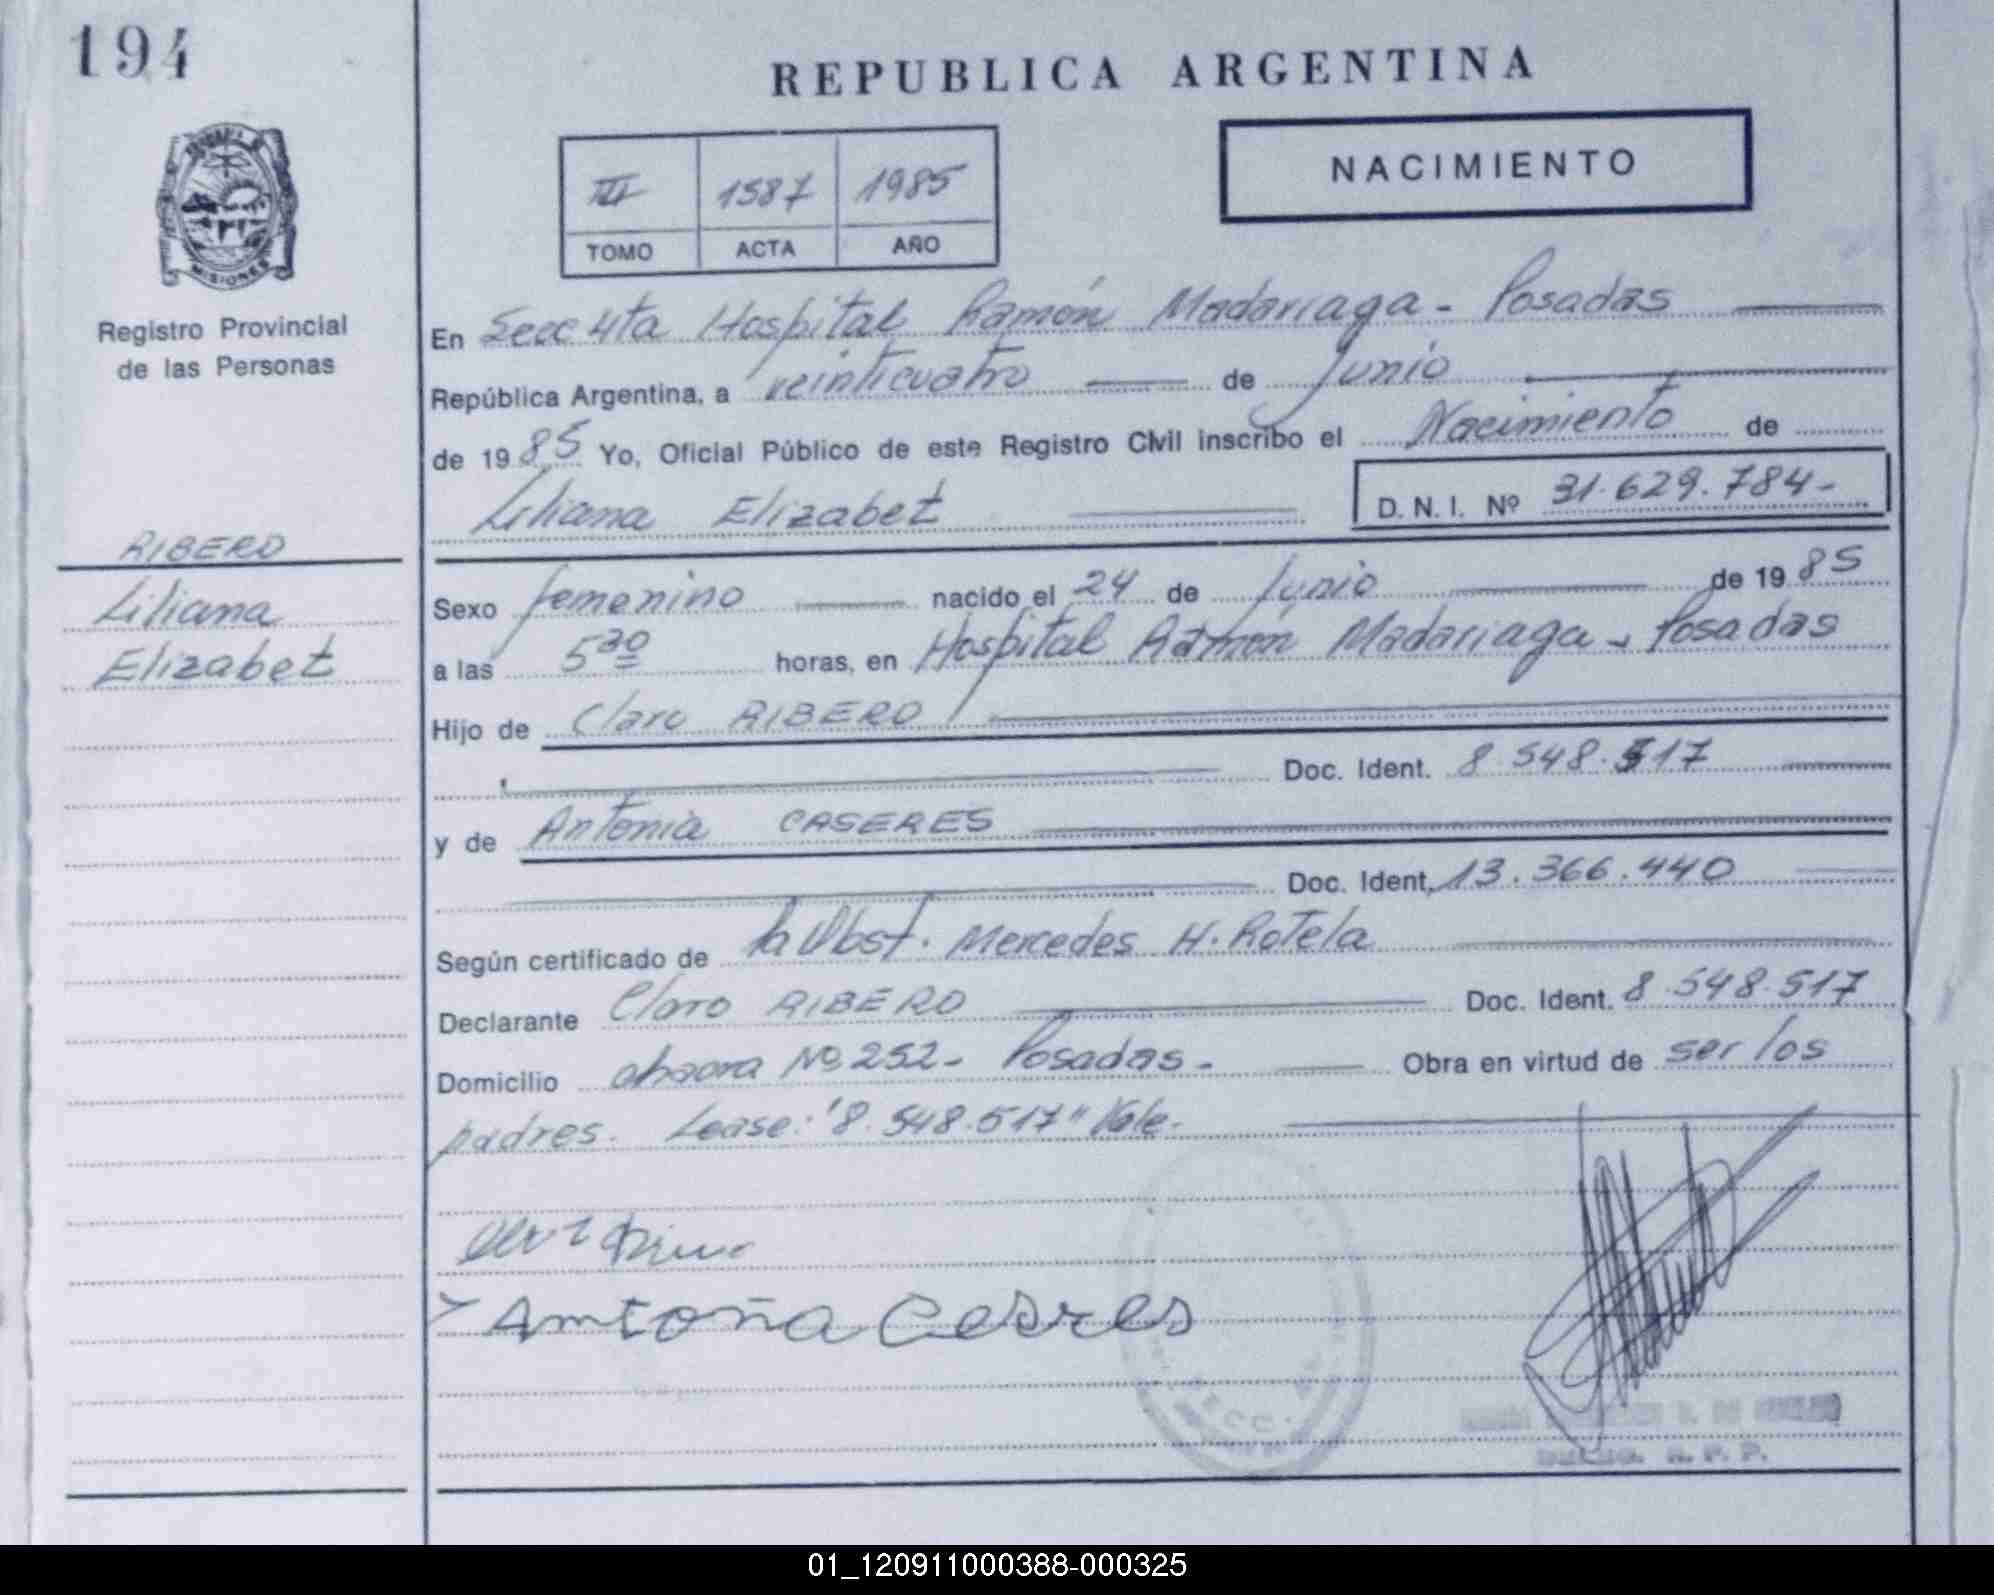 194
REPUBLICA ARGENTINA
MISIONES
Registro Provincial
de las Personas
III 1587 1985
TOMO ACTA AÑO
NACIMIENTO
En Secc 4ta Hospital Ramón Madariaga - Posadas
República Argentina, a veinticuatro de Junio
de 1985 Yo, Oficial Público de este Registro Civil inscribo el Nacimiento de
Liliana Elizabet D. N. I. Nº 31.629.784-
RIBERO
Liliana
Elizabet
Sexo femenino nacido el 24 de Junio de 1985
a las 5 30 horas, en Hospital Ramón Madariaga - Posadas
Hijo de Claro RIBERO
Doc. Ident. 8.548.517
y de Antonia CASERES
Doc. Ident. 13.366.440
Según certificado de la Obst. Mercedes H. Rotela
Declarante Claro RIBERO Doc. Ident. 8.548.517
Domicilio Nº 252- Posadas- Obra en virtud de ser los
padres. Lease: "8.548.517" Vale.
Antoña Cesres
SECC.
R. P. P.
01_120911000388-000325